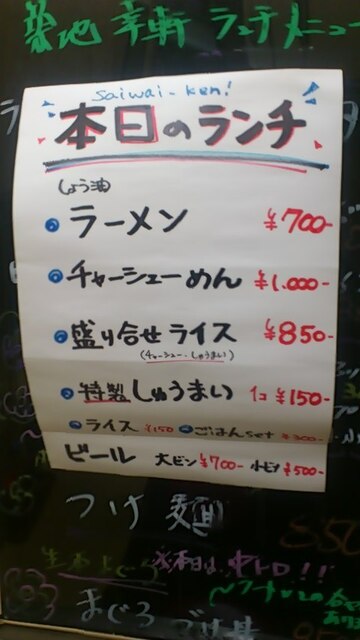 築地 幸軒 ランチメニュー
saiwai-ken!
本日のランチ
しょう油
ラーメン ¥700-
チャーシューめん ¥1.000-
盛り合せライス ¥850-
(チャーシュー・しゅうまい)
特製しゅうまい 1コ ¥150-
ライス ¥150 ごはんset ¥300-
ビール 大ビン¥700- 小ビン¥500-
つけ麺 850
※本日は中トロ!!
まぐろ